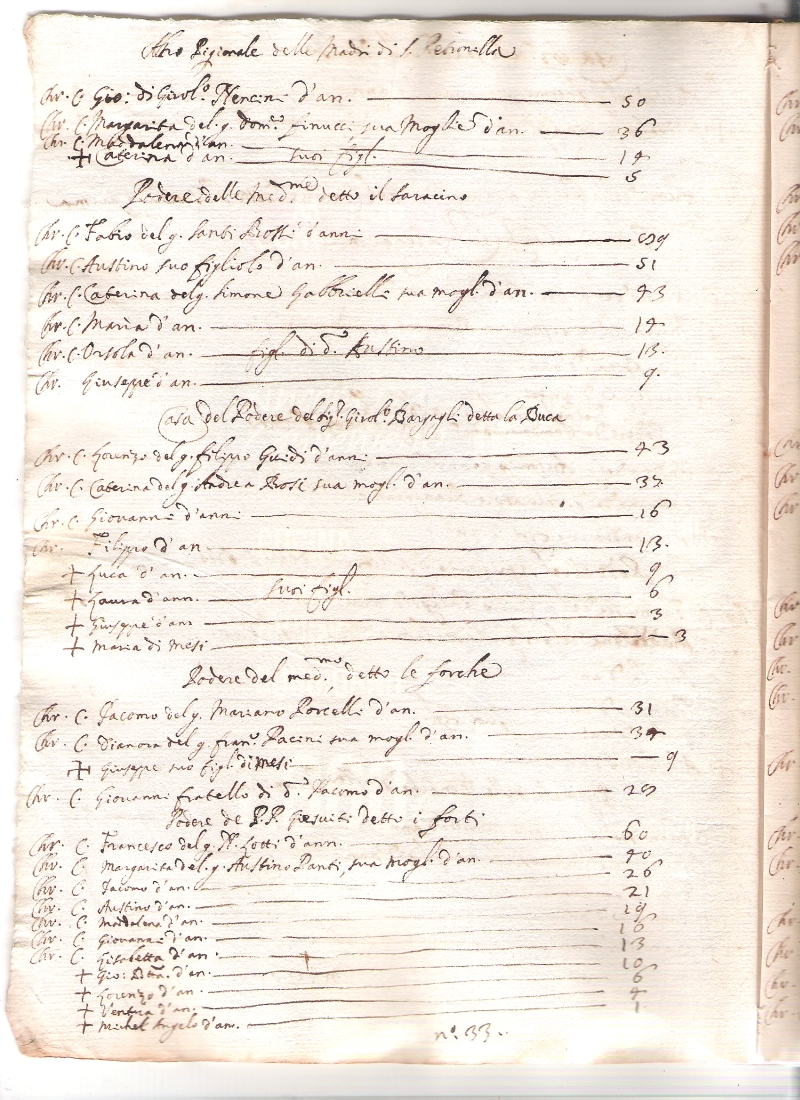 Altro Pigionale delle Madri di S. Petronilla
Chr. C. Gio: di Girol.o Nencini d'an. 50
Chr. C. Margarita del q. Dom.co Finucci sua Moglie d'an. 36
Chr. C. Madalena d'an. 14
+ Caterina d'an. suoi figl. 5
Podere delle Med.me detto il Saracino
Chr. C. Fabio del q. Santi Rossi d'anni 89
Chr. C. Austino suo figliolo d'an. 51
Chr. C. Caterina del q. Simone Gabbrielli sua mogl. d'an. 43
Chr. C. Maria d'an. 14
Chr. C. Orsola d'an. figl. di d.o Austino 13.
Chr. Giuseppe d'an. 9.
Casa del Podere del Sig.r Girol.o Bargagli detta la Buca
Chr. C. Lorenzo del q. Filippo Guidi d'anni 43
Chr. C. Caterina del q. Andrea Rosi sua mogl. d'an. 37
Chr. C. Giovanni d'anni 16
Chr. Filippo d'an 13.
+ Luca d'an. 9
+ Laura d'ann. suoi figl. 6
+ Giuseppe d'ann 3
+ Maria di mesi 3
Podere del med.mo detto le Forche
Chr. C. Jacomo del q. Mariano Porcelli d'an. 31
Chr. C. Dianora del q. Fran.co Pacini sua mogl. d'an. 34
+ Giuseppe suo figl. di mesi 9
Chr. C. Giovanni fratello di d.o Jacomo d'an. 29
Podere de P.P. Giesuiti detto i Forti
Chr. C. Francesco del q. N. Lotti d'ann. 60
Chr. C. Margarita del q. Austino Panti, sua mogl. d'an. 40
Chr. C. Jacomo d'an. 26
Chr. C. Austino d'an. 21
Chr. C. Maddalena d'an. 19
Chr. C. Giovanni d'an. 16
Chr. C. Lisabetta d'an. 13
+ Gio: Btta. d'an. 10
+ Lorenzo d'an. 6
+ Ventura d'an. 4
+ Michel Angelo d'an. 1
n.o 33.